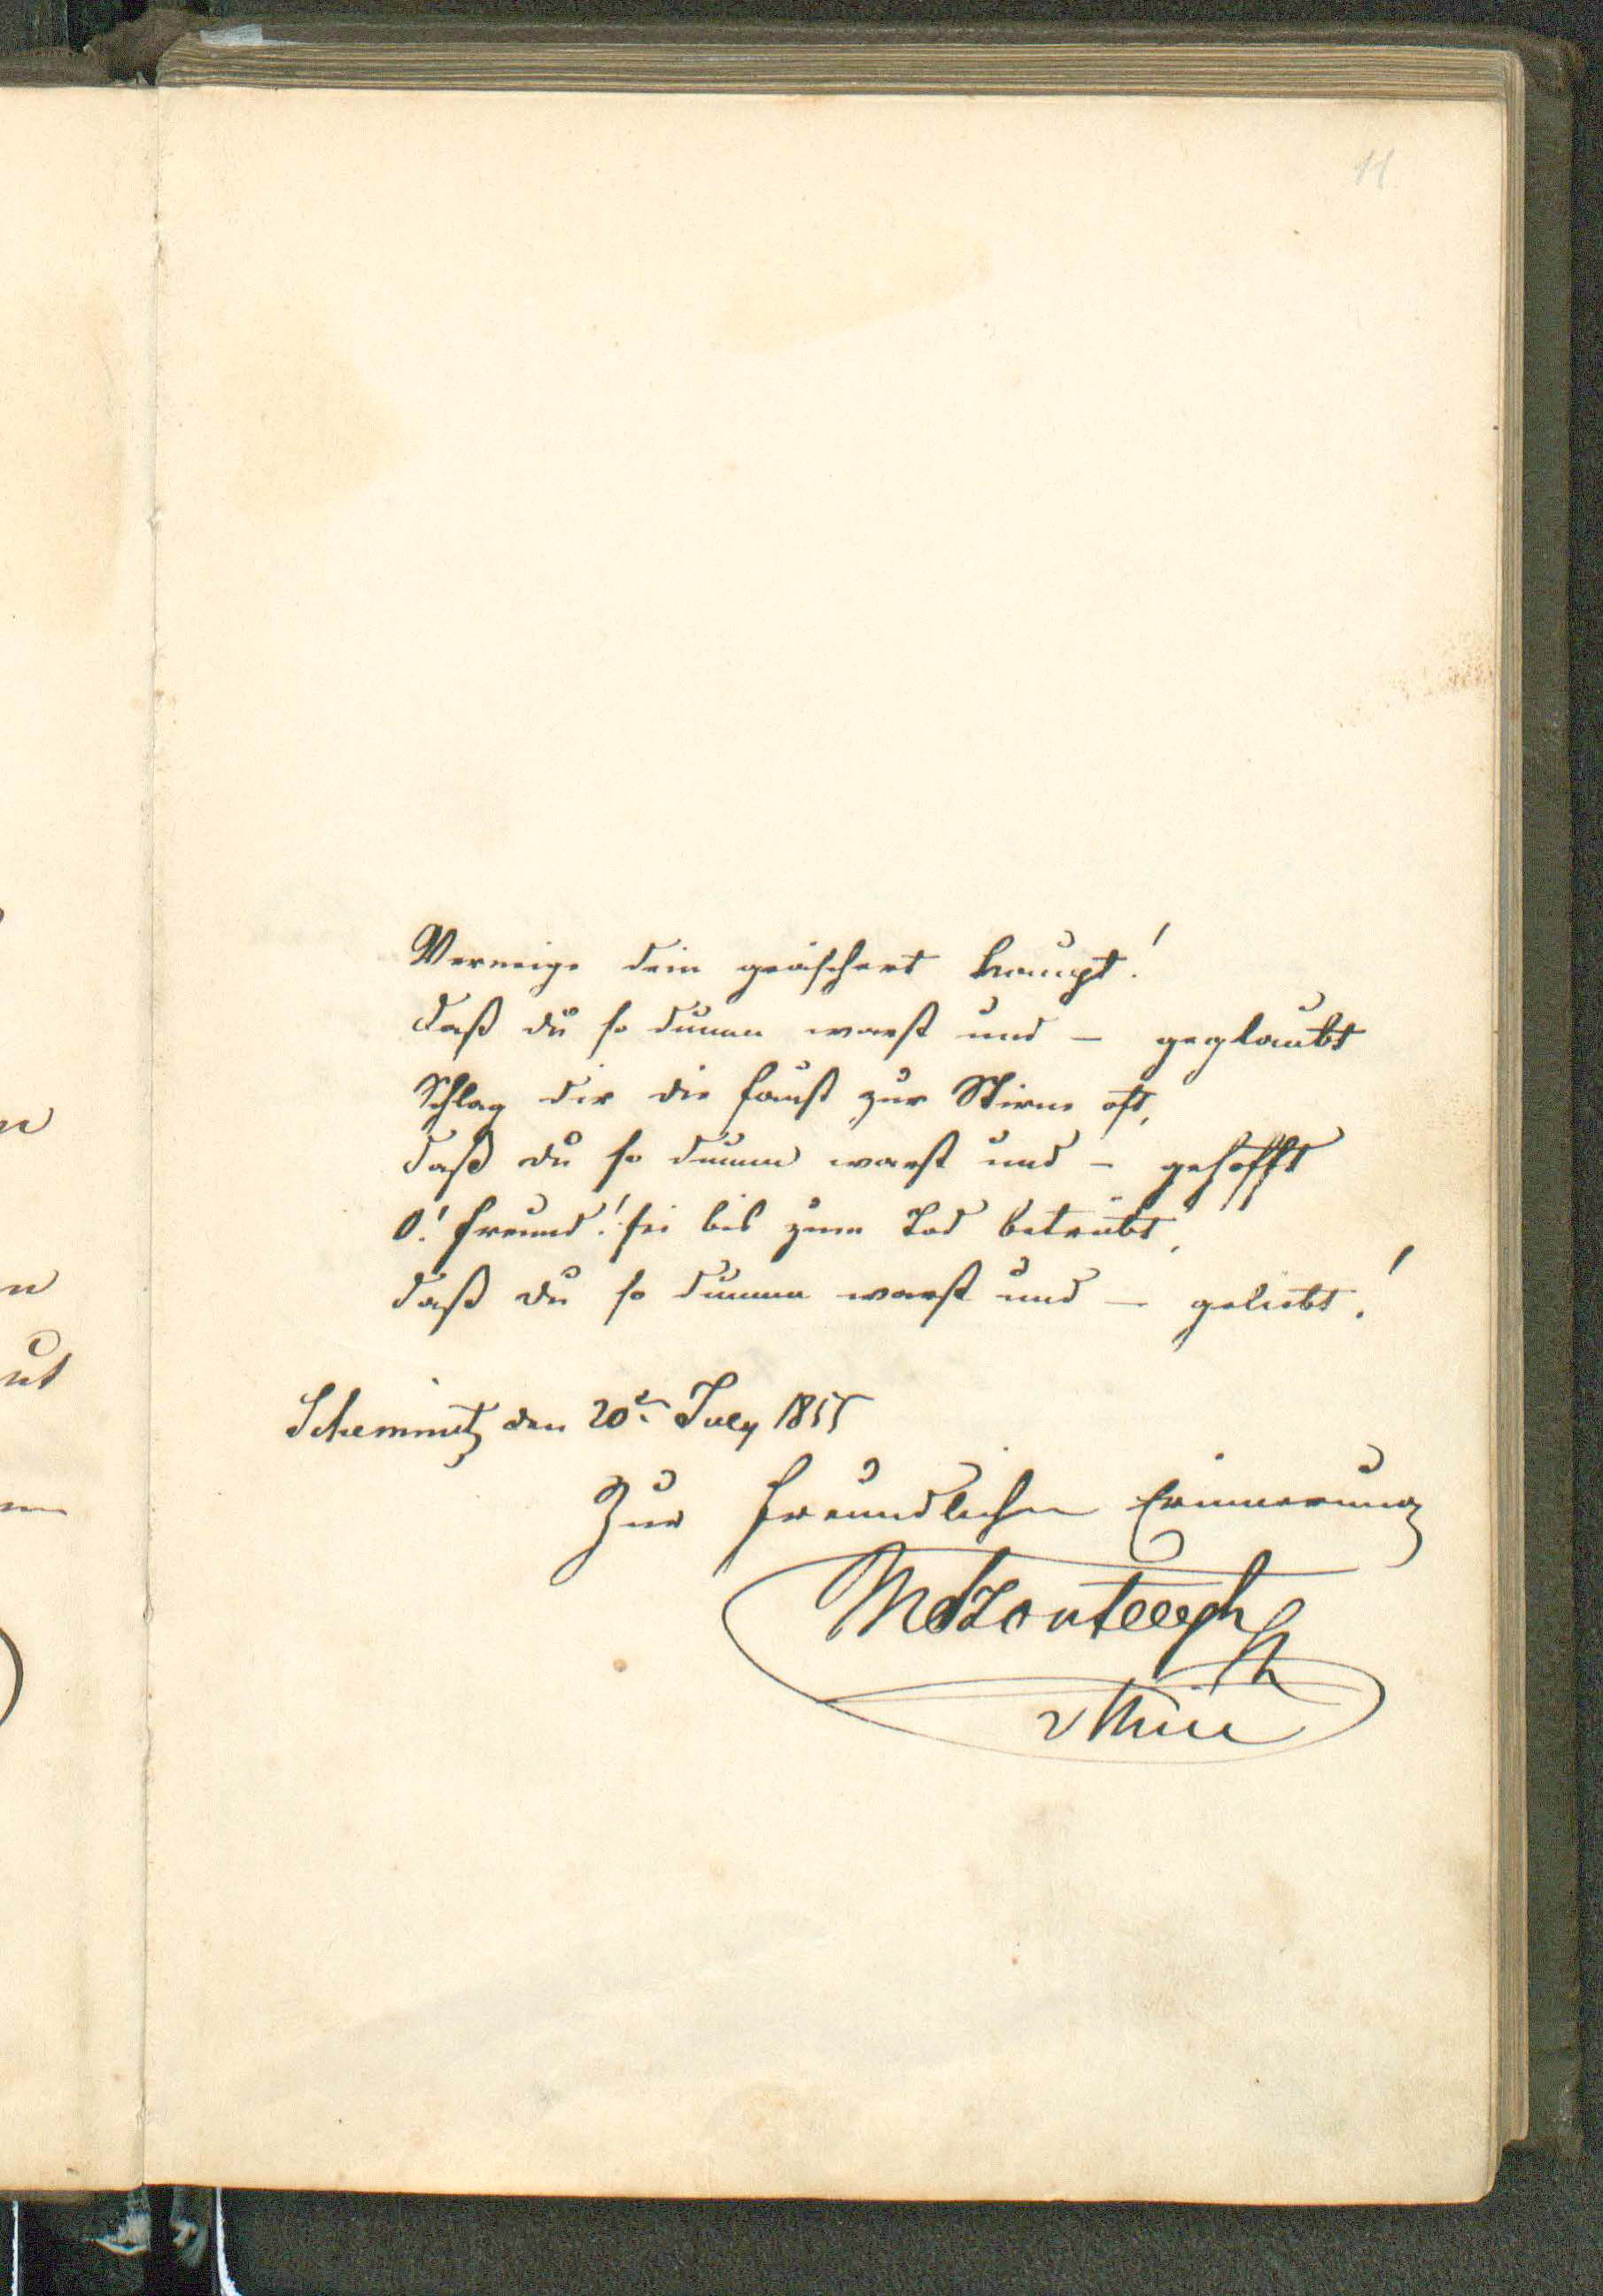 11
Verneige dein geäschert Haupt!
daß du so dumm warst und – geglaubt
Schlag dir die Faust zur Stirne oft,
daß du so dumm warst und – gehofft
O! Freund! sei bis zum Tod betrübt,
daß du so dumm warst und – geliebt!
Schemnitz den 20t. July 1855
Zur freundlichen Erinnerung